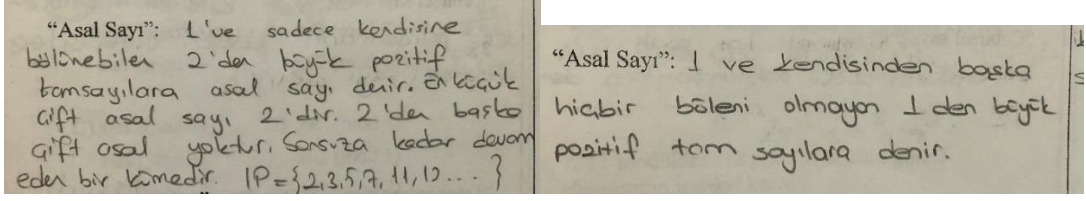 “Asal Sayı”: 1've sadece kendisine
bölünebilen 2'den büyük pozitif
tamsayılara asal sayı denir. En küçük
çift asal sayı 2'dir. 2'den başka
çift asal yoktur. Sonsuza kadar devam
eden bir kümedir. IP={2,3,5,7,11,13...}
“Asal Sayı”: 1 ve kendisinden başka
hiçbir böleni olmayan 1 den büyük
pozitif tam sayılara denir.